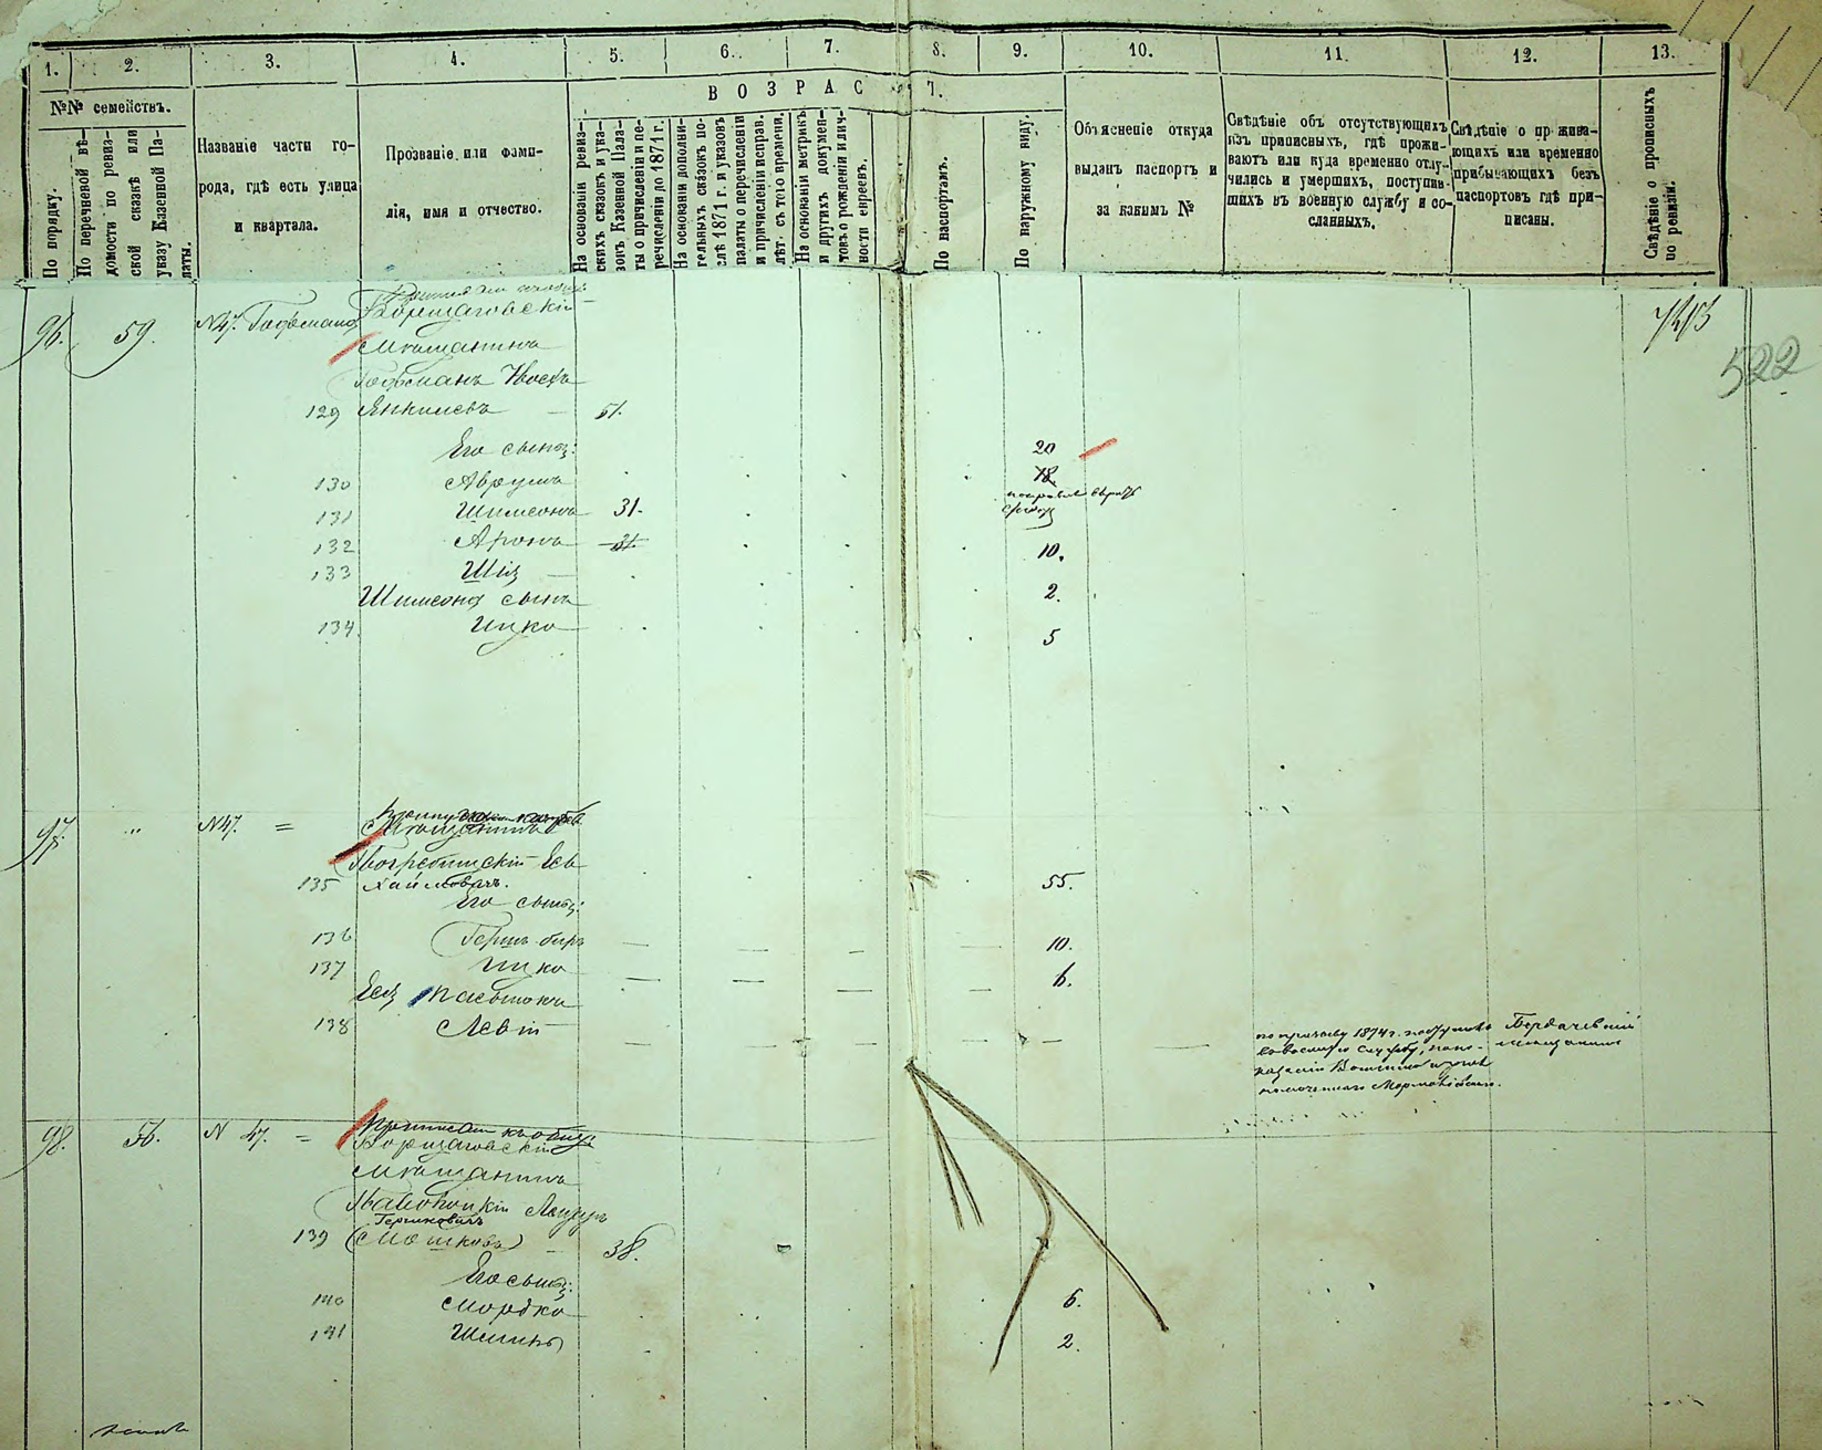 1. 2. 3. 4. 5. 6. 7. 8. 9. 10. 11. 12. 13.
№№ семействъ.
По порядку.
По перечневой вѣ-
домости по ревиз-
ской сказкѣ или
указу Казенной Па-
латы.
Названіе части го-
рода, гдѣ есть улица
и квартала.
Прозваніе или фами-
лія, имя и отчество.
ВОЗРАСТ.
На основаніи ревиз-
скихъ сказокъ и ука-
зовъ Казенной Пала-
ты о причисленіи и пе-
речисленіи до 1871 г.
На основаніи дополни-
тельныхъ сказокъ по-
слѣ 1871 г. и указовъ
палаты о перечисленіи
и причисленіи исправ.
лѣт. съ того времени.
На основаніи метрикъ
и другихъ докумен-
товъ о рожденіи и лич-
ности евреевъ.
По паспортамъ.
По наружному виду.
Объясненіе откуда
выданъ паспортъ и
за какимъ №
Свѣдѣніе объ отсутствующихъ
изъ приписныхъ, гдѣ прожи-
ваютъ или куда временно отлу-
чились и умершихъ, поступив-
шихъ въ военную службу и со-
сланныхъ.
Свѣдѣніе о прожива-
ющихъ или временно
прибывающихъ безъ
паспортовъ гдѣ при-
писаны.
Свѣдѣніе о прописныхъ
по ревизіи.
96. 59. N47. Гофмана Борщаговскій
522
Мѣщанинъ
Гофманъ Иосфъ
129 Янкилевъ 51.
Его сыны:
20
130 Аврумъ 18
131 Шимсонъ 31.
132 Аронъ 31. 10.
133 Шія 2.
Шимсона сынъ
134 Ицко 5
97. " N47. =
Мѣщанинъ
Погребишскій Есь
135 Хаимовичъ. 55.
Его сыны:
136 Гершъ-беръ 10.
137 Ицко 6.
Еся пасынокъ
138 Левій
по призыву 1874 г. поступилъ Бердичевскій
въ военную службу, мѣщанинъ
98. 56. N 47. = Приписан къ общ
Борщаговскій
Мѣщанинъ
Лейзеръ
Гершковичъ
139 (Мошковъ) 38.
Его сыны:
140 Мордко 6.
141 2.